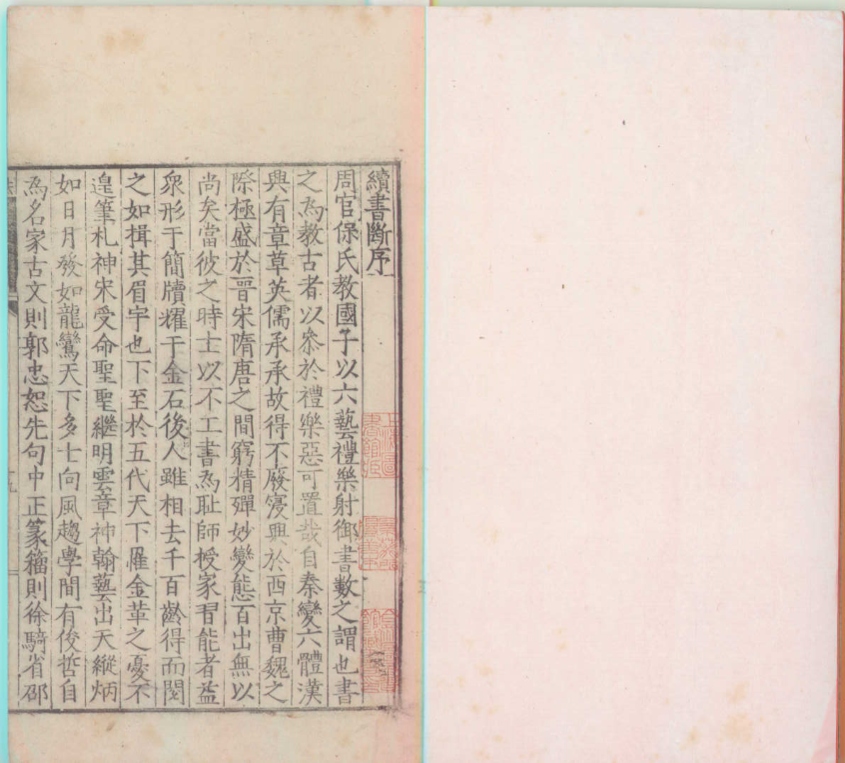 續書斷序
周官保氏教國子以六藝禮樂射御書數之謂也書
之為教古者以叅於禮樂惡可置哉自秦變六體漢
興有章草英儒承承故得不廢寖興於西京曹魏之
際極盛於晉宋隋唐之間窮精殫妙變態百出無以
尚矣當彼之時士以不工書為耻師授家習能者益
衆形于簡牘耀于金石後人雖相去千百齡得而閱
之如揖其眉宇也下至於五代天下罹金革之憂不
遑筆札神宋受命聖聖繼明雲章神翰藝出天縱炳
如日月發如龍鸞天下多士向風趨學間有俊哲自
為名家古文則郭忠恕先句中正篆籀則徐騎省邵